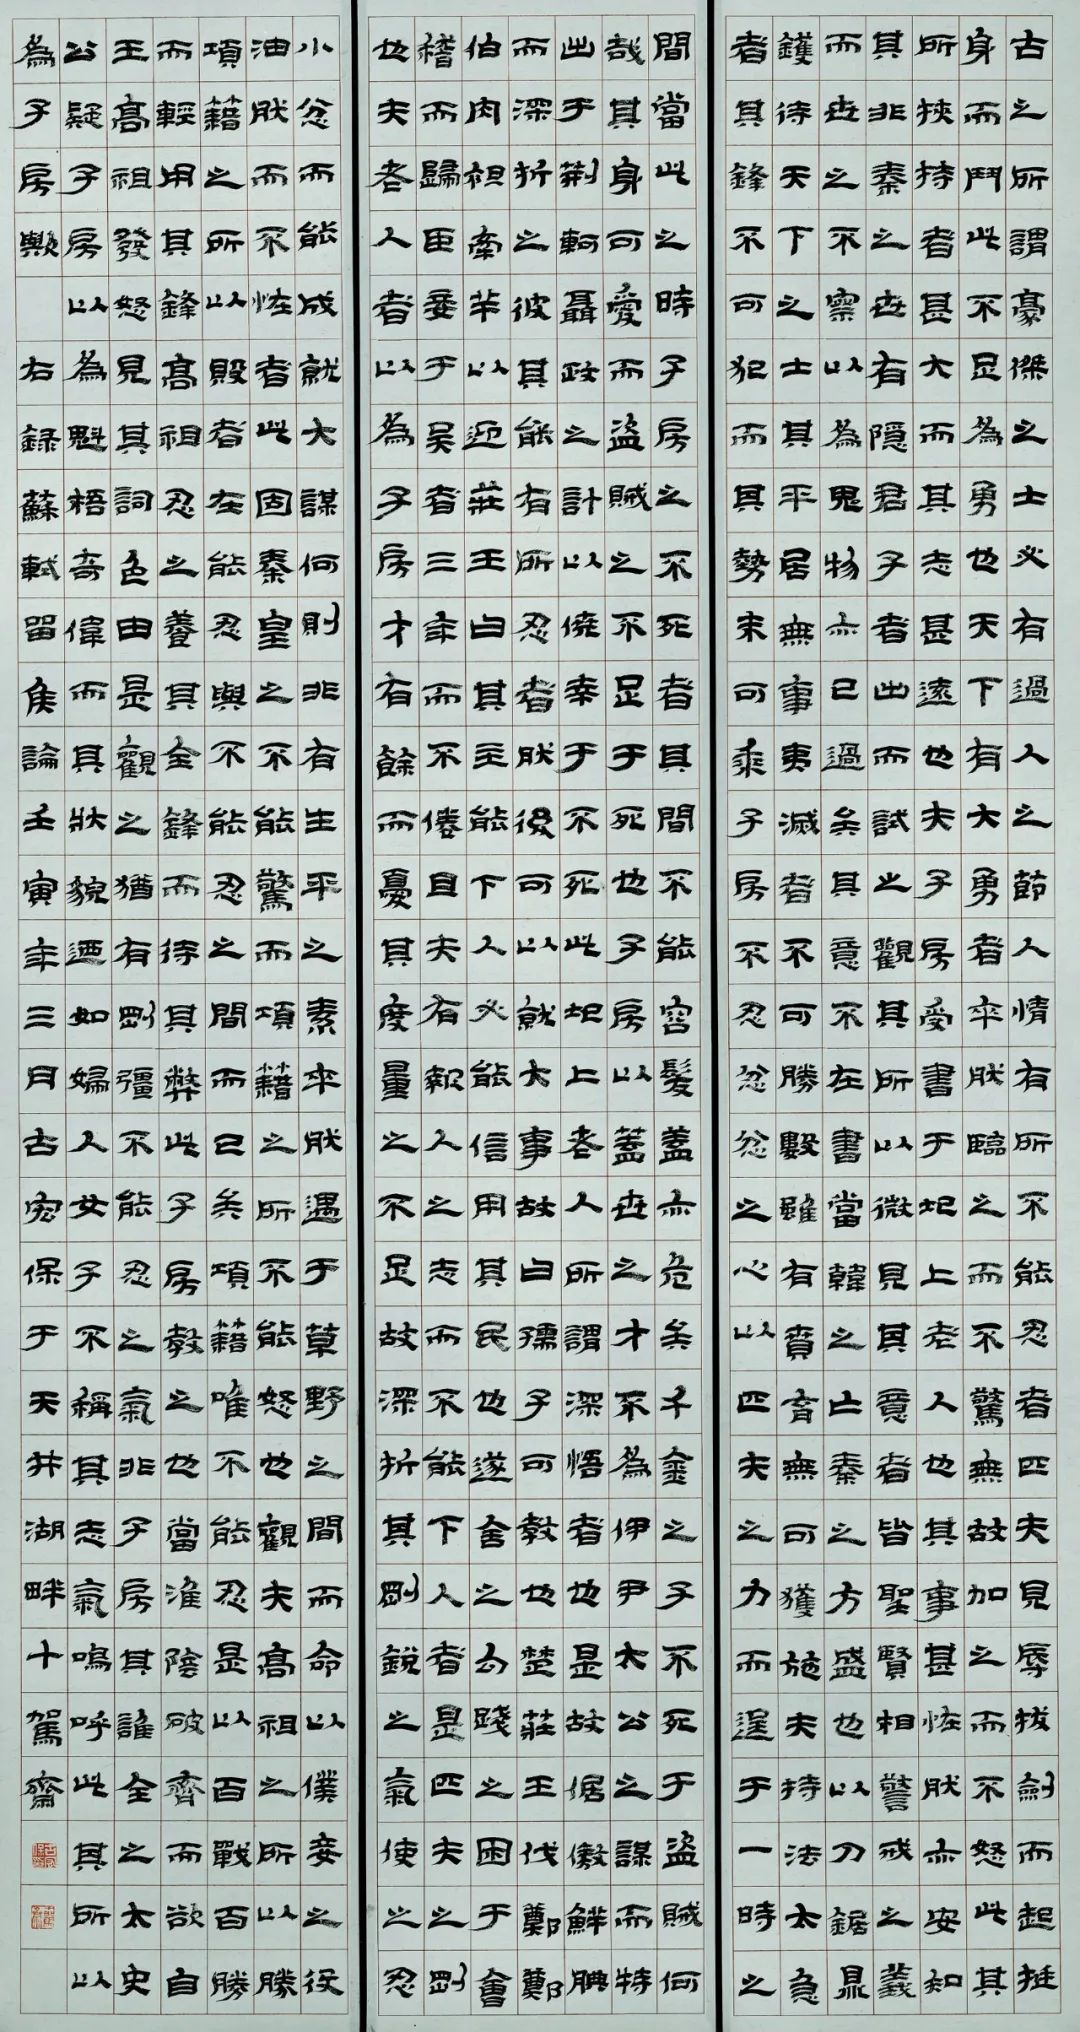 古之所謂豪傑之士必有過人之節人情有所不能忍者匹夫見辱拔劍而起挺
身而鬥此不足為勇也天下有大勇者卒然臨之而不驚無故加之而不怒此其
所挾持者甚大而其志甚遠也夫子房受書于圯上老人也其事甚怪然亦安知
其非秦之世有隱君子者出而試之觀其所以微見其意者皆聖賢相警戒之義
而世之不察以為鬼物亦已過矣其意不在書當韓之亡秦之方盛也以刀鋸鼎
鑊待天下之士其平居無事夷滅者不可勝數雖有賁育無可獲施夫持法太急
者其鋒不可犯而其勢未可乘子房不忍忿忿之心以匹夫之力而逞于一時之
間當此之時子房之不死者其間不能容髮蓋亦危矣千金之子不死于盜賊何
哉其身可愛而盜賊之不足于死也子房以蓋世之才不為伊尹太公之謀而特
出于荊軻聶政之計以僥幸于不死此圯上老人所謂深悟者也是故倨傲鮮腆
而深折之彼其能有所忍者然後可以就大事故曰孺子可教也楚莊王伐鄭鄭
伯肉袒牽羊以迎莊王曰其主能下人必能信用其民也遂舍之勾踐之困于會
稽而歸臣妾于吳者三年而不倦且夫有報人之志而不能下人者是匹夫之剛
也夫老人者以為子房才有餘而憂其度量之不足故深折其剛銳之氣使之忍
小忿而能成就大謀何則非有生平之素卒然遇于草野之間而命以僕妾之役
油然而不怪者此固秦皇之不能驚而項籍之所不能怒也觀夫高祖之所以勝
項籍之所以敗者在能忍與不能忍之間而已矣項籍唯不能忍是以百戰百勝
而輕用其鋒高祖忍之養其全鋒而待其弊此子房教之也當淮陰破齊而欲自
王高祖發怒見其詞色由是觀之猶有剛彊不能忍之氣非子房其誰全之太史
公疑子房以為魁梧奇偉而其狀貌迺如婦人女子不稱其志氣嗚呼此其所以
為子房歟 右錄蘇軾留侯論壬寅年三月古宏保于天井湖畔十駕齋